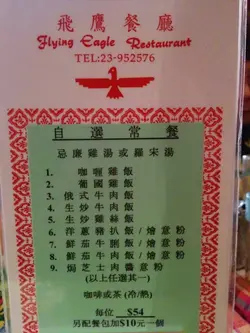 飛鷹餐廳
Flying Eagle Restaurant
TEL:23-952576
自選常餐
忌廉雞湯或羅宋湯
1. 咖喱雞飯
2. 葡國雞飯
3. 俄式牛肉飯
4. 生炒牛肉飯
5. 生炒雞絲飯
6. 洋蔥豬扒飯/燴意粉
7. 鮮茄牛脷飯/燴意粉
8. 鮮茄牛肉飯/燴意粉
9. 焗芝士肉醬意粉
(以上任選其一)
咖啡或茶(冷/熱)
每位 $54
另配餐包加$10元一個